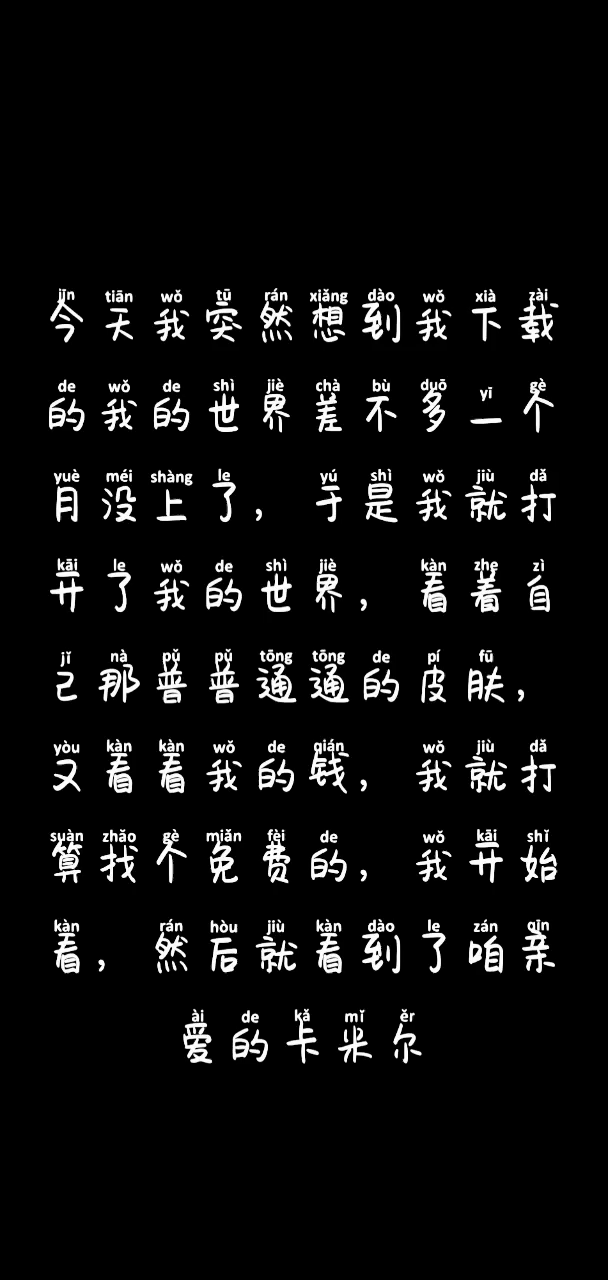 jīn tiān wǒ tū rán xiǎng dào wǒ xià zài
今天我突然想到我下载
de wǒ de shì jiè chà bù duō yī gè
的我的世界差不多一个
yuè méi shàng le yú shì wǒ jiù dǎ
月没上了，于是我就打
kāi le wǒ de shì jiè kàn zhe zì
开了我的世界，看着自
jǐ nà pǔ pǔ tōng tōng de pí fū
己那普普通通的皮肤，
yòu kàn kàn wǒ de qián wǒ jiù dǎ
又看看我的钱，我就打
suàn zhǎo gè miǎn fèi de wǒ kāi shǐ
算找个免费的，我开始
kàn rán hòu jiù kàn dào le zán qīn
看，然后就看到了咱亲
ài de kǎ mǐ ěr
爱的卡米尔